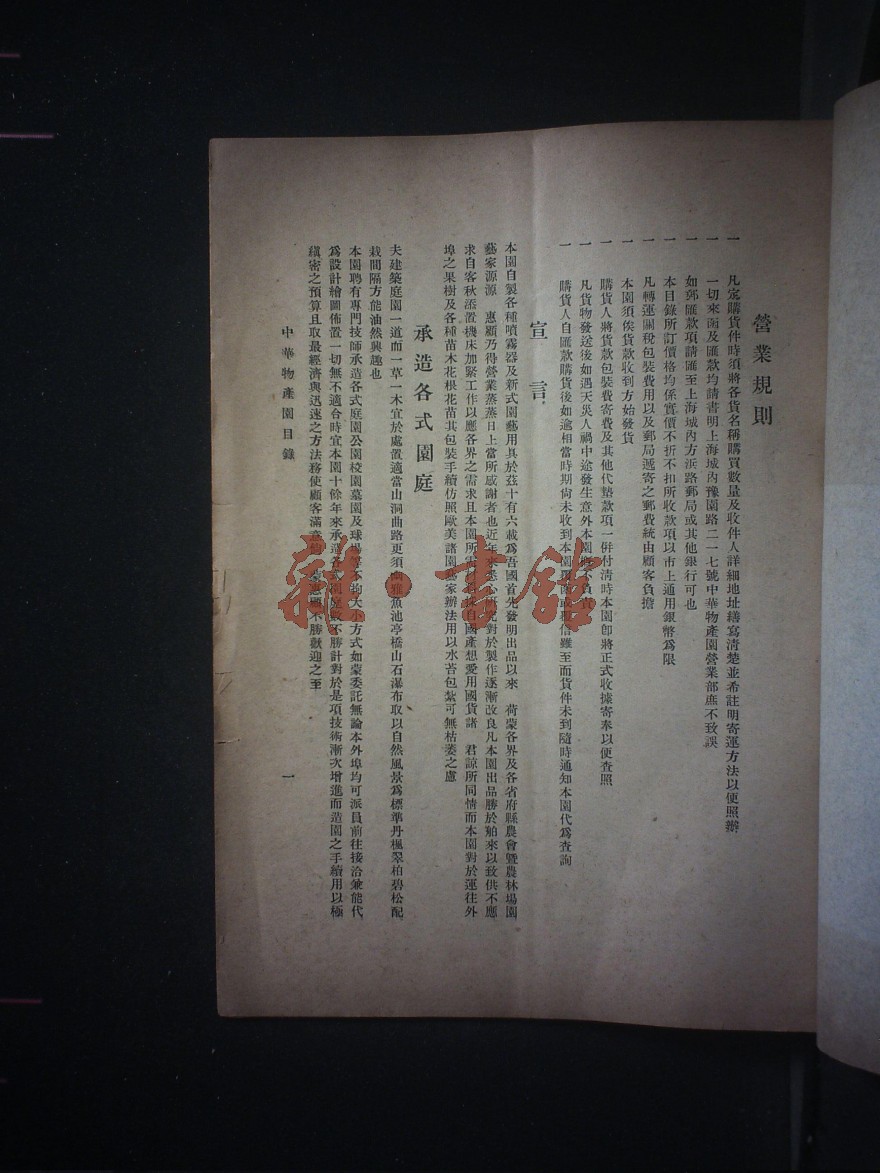 營業規則
一 凡定購貨件時須將各貨名稱購買數量及收件人詳細地址繕寫淸楚並希註明寄運方法以便照辦
一 一切來函及匯款均請書明上海城內豫園路二一七號中華物產園營業部庶不致誤
一 如郵匯款項請匯至上海城內方浜路郵局或其他銀行可也
一 本目錄所訂價格均係實價不折不扣所收款項以市上通用銀幣爲限
一 凡轉運關稅包裝費用以及郵局遞寄之郵費統由顧客負擔
一 本園須俟貨款收到方始發貨
一 購貨人將貨款包裝費寄費及其他代墊款項一併付淸時本園卽將正式收據寄奉以便查照
一 凡貨物發送後如遇天災人禍中途發生意外本園槪不負責
一 購貨人自匯款購貨後如逾相當時期尙未收到本園覆函或覆信雖至而貨件未到隨時通知本園代爲查詢
宣言
本園自製各種噴霧器及新式園藝用具於茲十有六載爲吾國首先發明出品以來 荷蒙各界及各省府縣農會暨農林場園
藝家源源 惠顧乃得營業蒸蒸日上當所感謝者也近年來悉心研究對於製作逐漸改良凡本園出品勝於舶來以致供不應
求自客秋添置機床加緊工作以應各界之需求且本園所需材料採自國產想愛用國貨諸 君諒所同情而本園對於運往外
埠之果樹及各種苗木花根花苗其包裝手續仿照歐美諸園藝家辦法用以水苔包紮可無枯萎之慮
承造各式園庭
夫建築庭園一道而一草一木宜於處置適當山洞曲路更須幽雅魚池亭橋山石瀑布取以自然風景爲標準丹楓翠柏碧松配
栽間隔方能油然興趣也
本園聘有專門技師承造各式庭園公園校園墓園及球場等不拘大小方式如蒙委託無論本外埠均可派員前往接洽兼能代
爲設計繪圖佈置一切無不適合時宜本園十餘年來承造各式園庭數不勝計對於是項技術漸次增進而造園之手續用以極
縝密之預算且取最經濟與迅速之方法務使顧客滿意 蒙惠顧不勝歡迎之至
中華物產園目錄
一
雜·書館